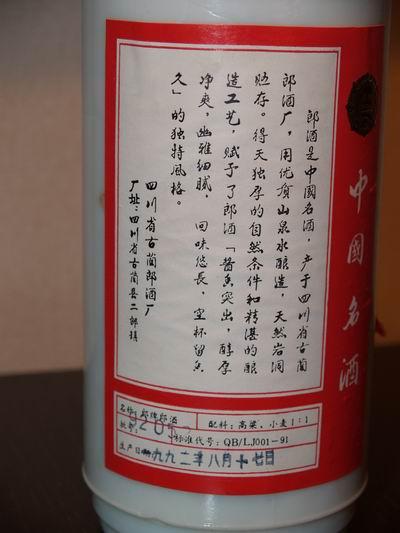 郎酒是中國名酒，产于四川省古蔺
郎酒厂，用优質山泉水酿造，天然岩洞
贮存。得天独厚的自然条件和精湛的酿
造工艺，赋予了郎酒「醬香突出，醇厚
净爽，幽雅细腻，回味悠長，空杯留香
久」的独特風格。
四川省古蔺郎酒厂
厂址：四川省古蔺县二郎鎮
中國名酒
名称：郎牌郎酒
配料：高粱、小麦1:1
批号：
标准代号：QB/LJ001-91
生产日期
一九九二年八月十七日